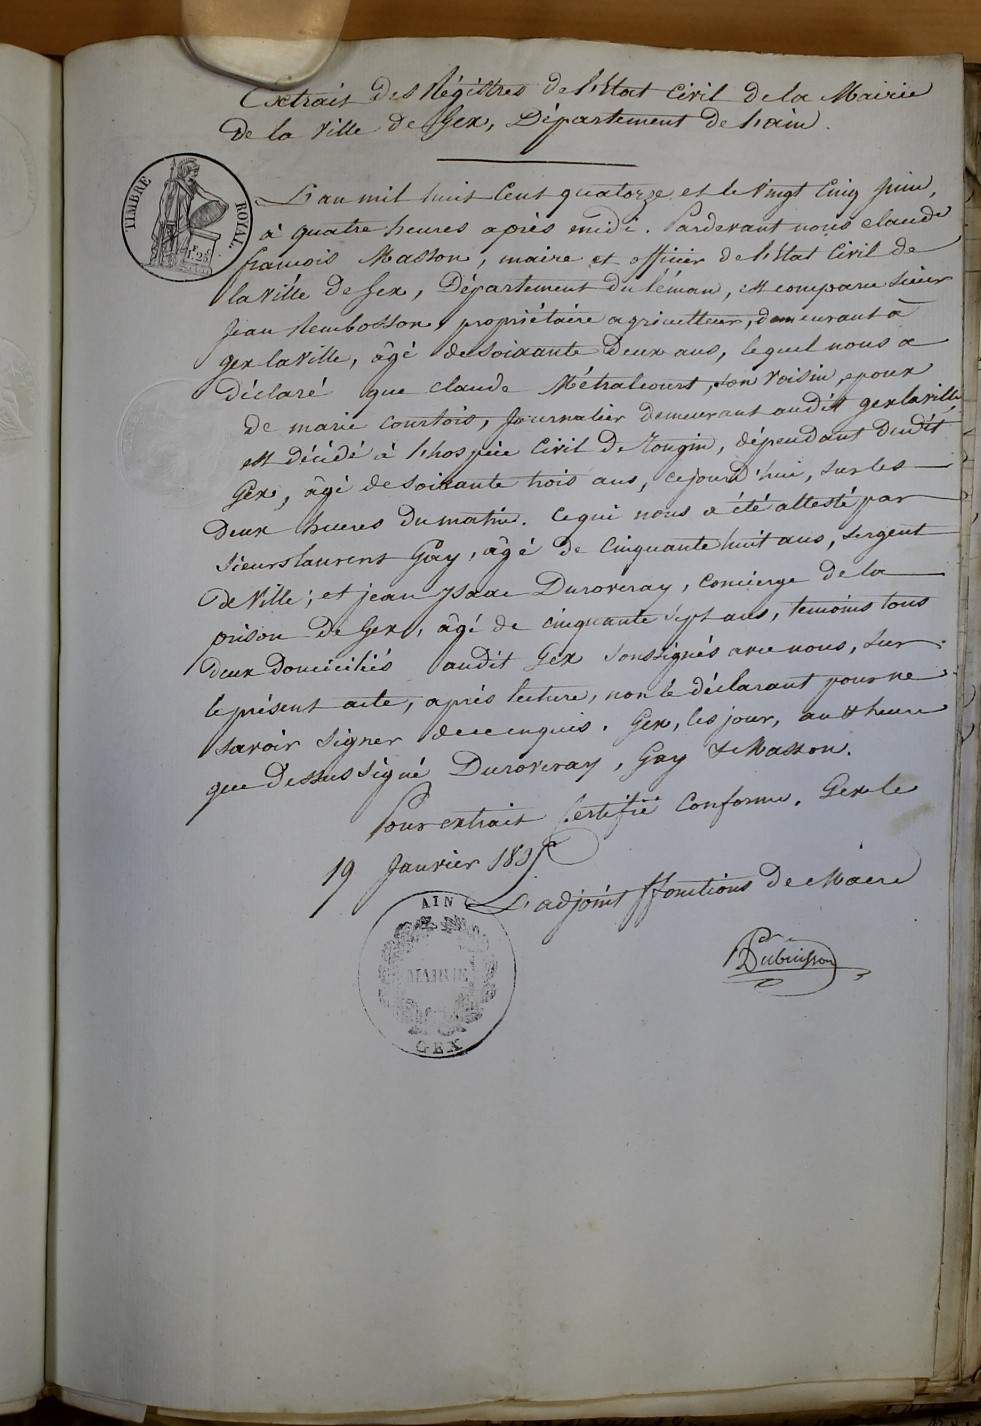 Extrait des Régistres de l'Etat Civil de la Mairie
de la ville de Gex, Département de l'ain.
TIMBRE ROYAL.
1f. 25c
L'an mil huit Cent quatorze et le vingt Cinq Juin,
à quatre heures après midi. Pardevant nous Claude
françois Masson, maire et officier de l'Etat Civil de
la ville de Gex, Département du léman, est comparu sieur
Jean Rembosson, propriétaire agriculteur, demeurant à
Gex la ville, âgé de soixante deux ans, lequel nous a
déclaré que claude Métralcourt, son voisin, epoux
de marie Courtois, Journalier demeurant audit gex la ville,
est décédé à l'hospice Civil de Tougin, dépendant dudit
Gex, âgé de soixante trois ans, cejourd'hui, sur les
deux heures du matin. ce qui nous a été attesté par
sieurs laurent Gay, âgé de Cinquante huit ans, sergent
de Ville; et jean ysaac Duroveray, Concierge de la
prison de Gex, âgé de cinquante sept ans, temoins tous
deux domiciliés audit Gex soussignés avec nous, sur
le présent acte, après lecture, non le déclarant pour ne
savoir signer de ce enquis. Gex, les jour, an & heure
que dessus signé Duroveray, Gay & Masson.
Pour extrait Certifié Conforme. Gex le
19 Janvier 18
L'adjoint ffonctions de Maire
Dubuisson
AIN
MAIRIE
GEX